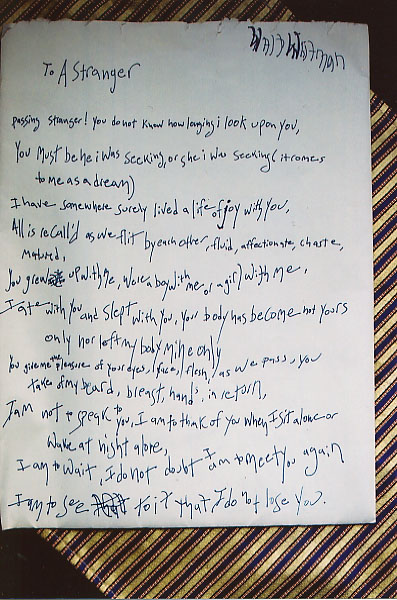 Walt Whitman
To A Stranger
passing stranger! You do not know how longing i look upon you,
You must be he i was seeking, or she i was seeking (it comes
to me as a dream)
I have somewhere surely lived a life of joy with you,
All is recall'd as we flit by each other, fluid, affectionate, chaste,
matured,
You grew up with me, were a boy with me or a girl with me,
I ate with you and slept with you, your body has become not yours
only nor left my body mine only
You give me the pleasure of your eyes, face, flesh, as we pass, you
take of my beard, breast, hands, in return,
I am not to speak to you, I am to think of you when I sit alone or
wake at night alone,
I am to wait, I do not doubt I am to meet you again
I am to see to it that I do not lose you.